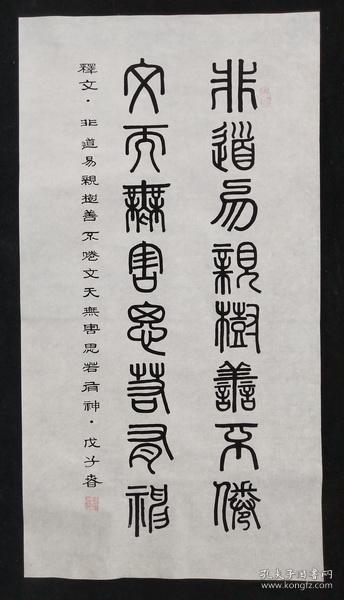 非道易親樹善不倦
文天無害思若有神
釋文·非道易親樹善不倦文天無害思若有神·戊子春
孔夫子旧书网
kongfz.com